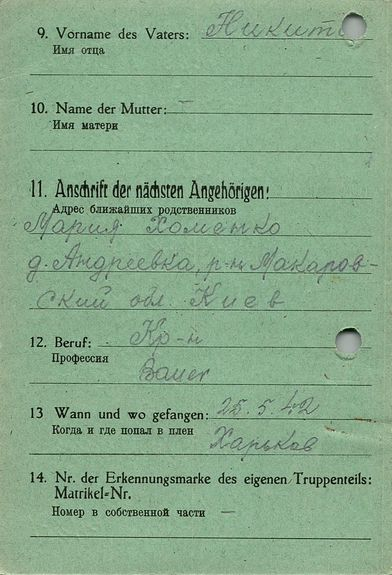 9. Vorname des Vaters: Никита
Имя отца
10. Name der Mutter: —
Имя матери
11. Anschrift der nächsten Angehörigen:
Адрес ближайших родственников
Мария Хоменко
д. Андреевка, р-н Макаров-
ский обл. Киев
12. Beruf: Кр-н
Профессия
Bauer
13 Wann und wo gefangen: 25.5.42
Когда и где попал в плен
Харьков
14. Nr. der Erkennungsmarke des eigenen Truppenteils:
Matrikel-Nr.
Номер в собственной части —